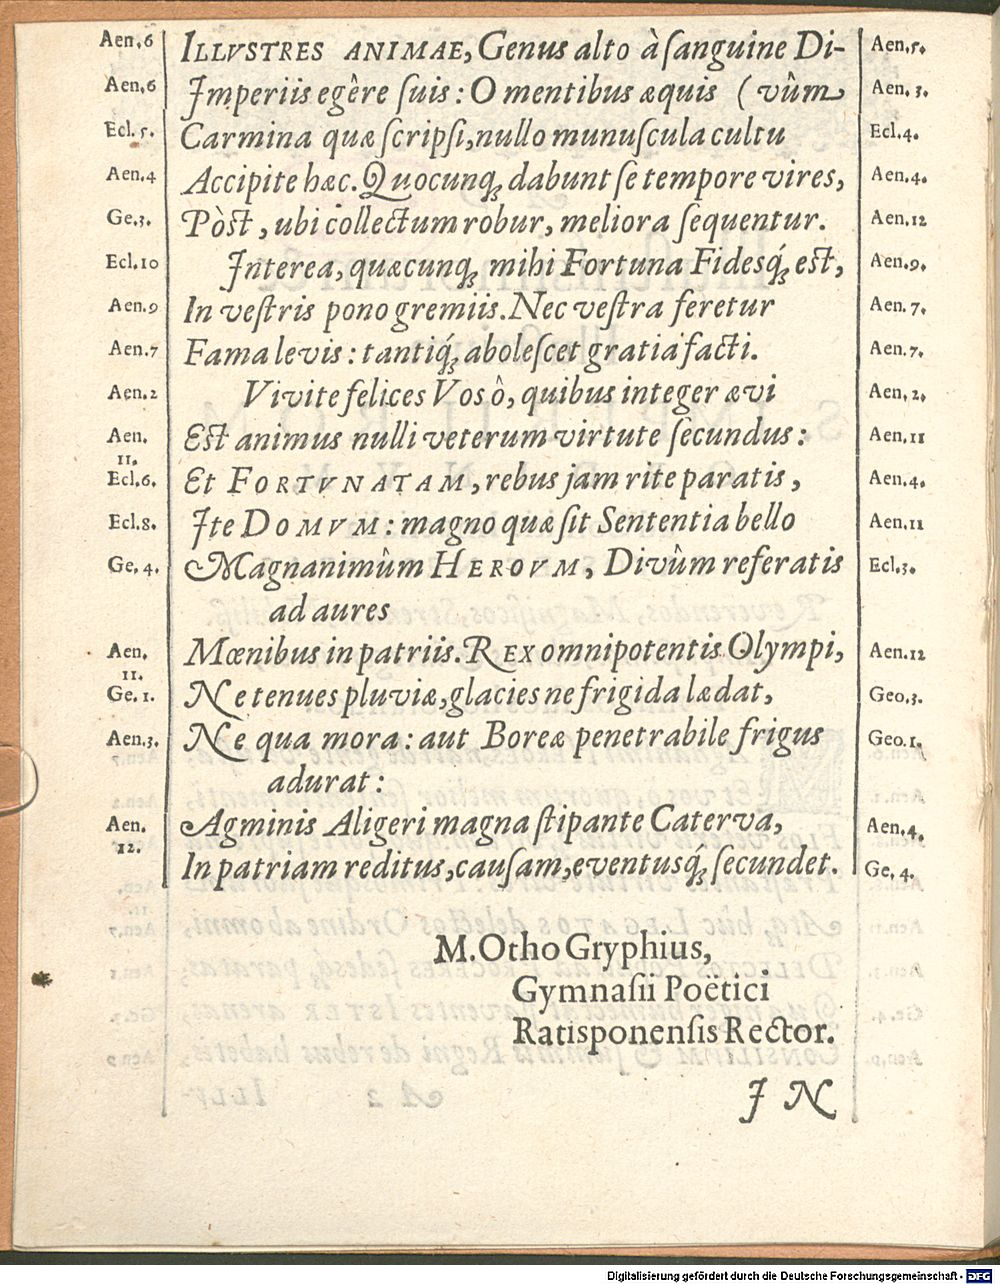 Aen.6 ILLVSTRES ANIMAE, Genus alto à ſanguine Di- Aen.5.
Aen.6 Imperiis egêre ſuis: O mentibus æquis (vûm Aen.3.
Ecl.5. Carmina quæ ſcripſi, nullo munuſcula cultu Ecl.4.
Aen.4 Accipite hæc. Quocunq; dabunt ſe tempore vires, Aen.4.
Ge.3. Pòst, ubi collectum robur, meliora ſequentur. Aen.12
Ecl.10 Interea, quæcunq; mihi Fortuna Fidesq́; est, Aen.9.
Aen.9 In veſtris pono gremiis. Nec veſtra feretur Aen.7.
Aen.7 Fama levis: tantiq́; aboleſcet gratia facti. Aen.7.
Aen.2 Vivite felices Vos ô, quibus integer ævi Aen.2.
Aen.11. Est animus nulli veterum virtute ſecundus: Aen.11
Ecl.6. Et FORTVNATAM, rebus jam rite paratis, Aen.4.
Ecl.8. Ite DOMVM: magno quæ ſit Sententia bello Aen.11
Ge.4. Magnanimûm HEROVM, Divûm referatis Ecl.3.
ad aures
Aen.11. Mœnibus in patriis. REX omnipotentis Olympi, Aen.12
Ge.1. Ne tenues pluviæ, glacies ne frigida lædat, Geo.3.
Aen.3. Ne qua mora: aut Boreæ penetrabile frigus Geo.1.
adurat:
Aen.12. Agminis Aligeri magna ſtipante Caterva, Aen.4.
In patriam reditus, cauſam, eventusq́; ſecundet. Ge.4.
M. Otho Gryphius,
Gymnaſii Poëtici
Ratisponenſis Rector.
IN
Digitalisierung gefördert durch die Deutsche Forschungsgemeinschaft - DFG